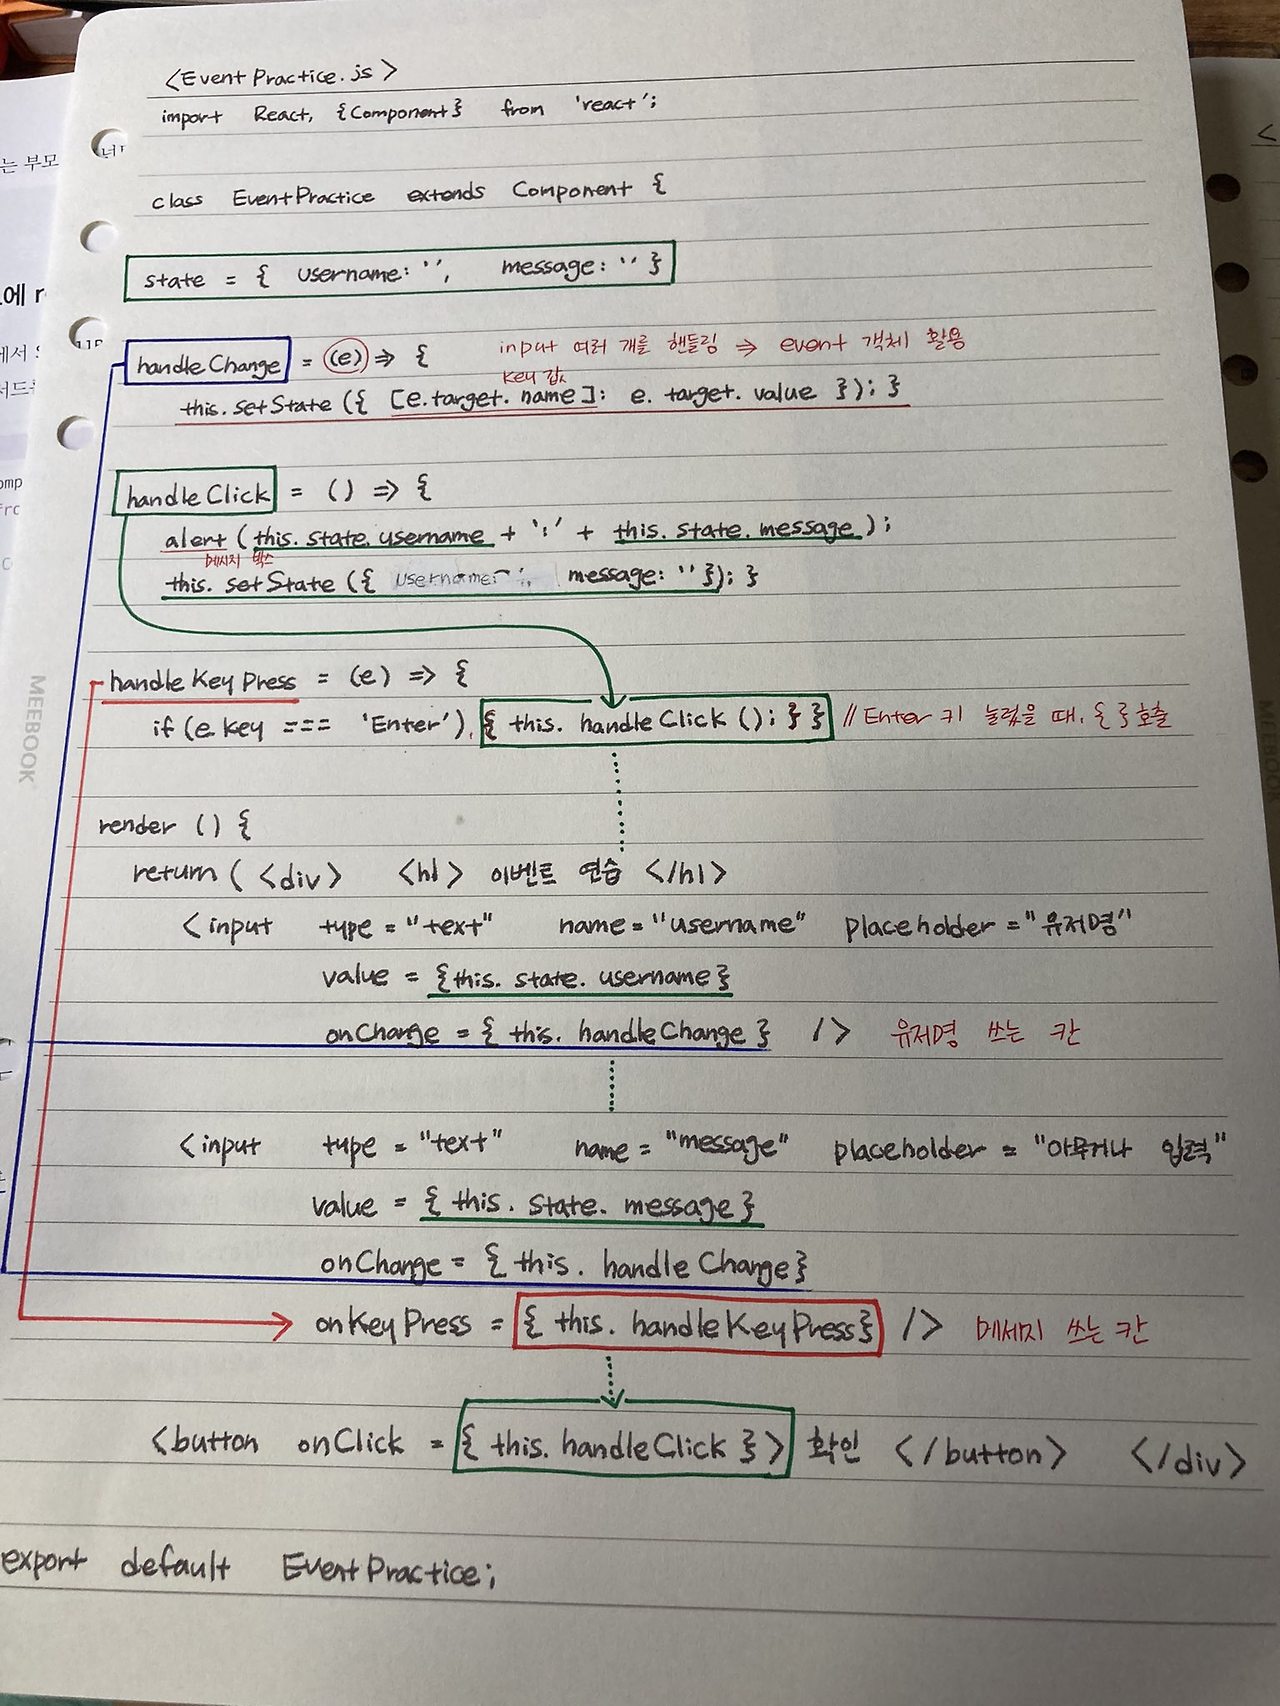 <EventPractice.js>
import React, {Component} from 'react';
class EventPractice extends Component {
state = { username: '', message: '' }
handleChange = (e) => {
input 여러 개를 핸들링 ⇒ event 객체 활용
key 값
this.setState ({ [e.target.name]: e.target.value }); }
handleClick = () => {
alert (this.state.username + ':' + this.state.message);
메시지 박스
this.setState ({ username: '', message: '' }); }
handleKeyPress = (e) => {
if (e.key === 'Enter') { this.handleClick (); } } // Enter 키 눌렀을 때, { } 호출
render () {
return ( <div> <h1> 이벤트 연습 </h1>
<input type = "text" name = "username" placeholder = "유저명"
value = {this.state.username}
onChange = { this.handleChange } /> 유저명 쓰는 칸
<input type = "text" name = "message" placeholder = "아무거나 입력"
value = { this.state.message }
onChange = { this.handleChange}
onKeyPress = { this.handleKeyPress} /> 메세지 쓰는 칸
<button onClick = { this.handleClick } > 확인 </button> </div>
export default EventPractice;
MEEBOOK
는 부모
에서